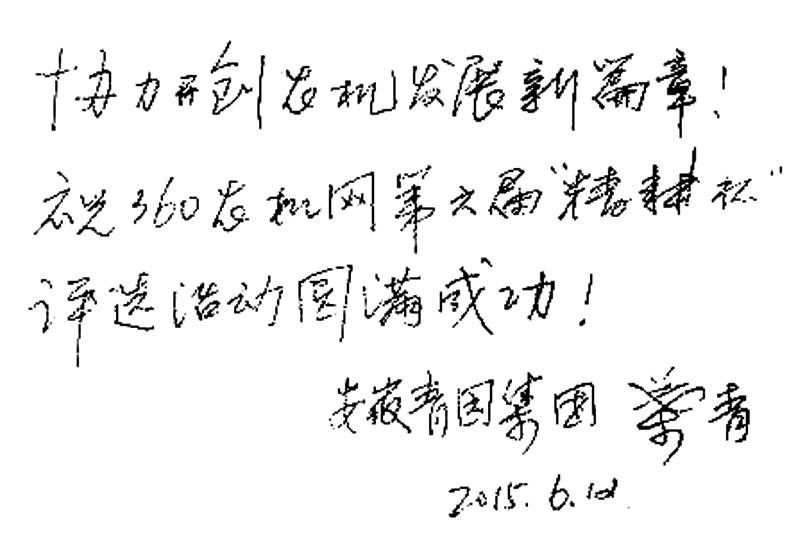 协力开创农机发展新篇章！
祝360农机网第六届“精耕杯”
评选活动圆满成功！
安徽青园集团 青
2015.6.